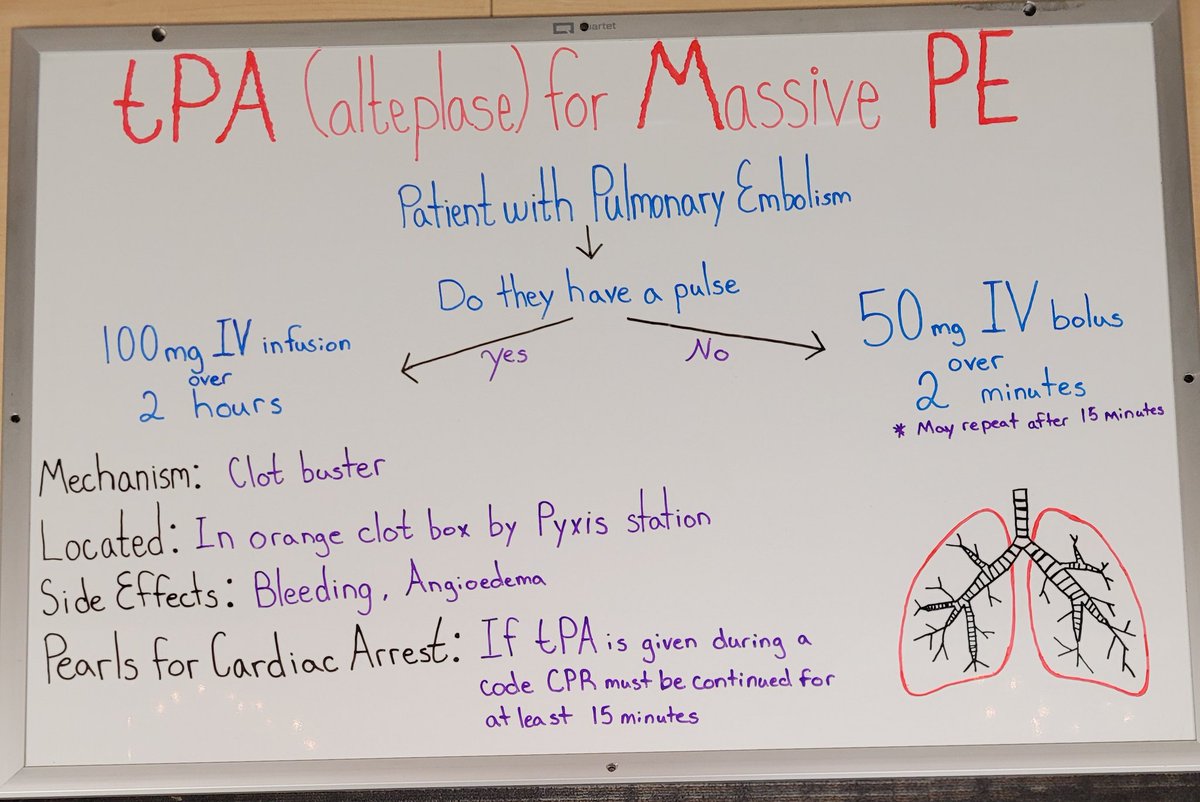 Quartet
tPA (alteplase) for Massive PE
Patient with Pulmonary Embolism
Do they have a pulse
Yes
No
100mg IV infusion
over
2 hours
50mg IV bolus
over
2 minutes
* May repeat after 15 minutes
Mechanism: Clot buster
Located: In orange clot box by Pyxis station
Side Effects: Bleeding, Angioedema
Pearls for Cardiac Arrest: If tPA is given during a
code CPR must be continued for
at least 15 minutes